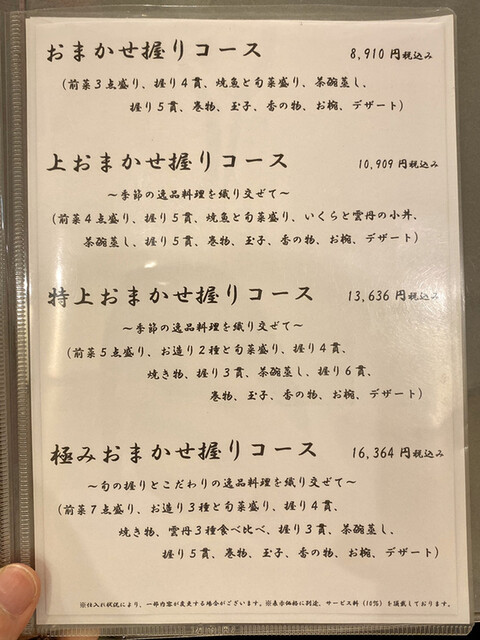 おまかせ握りコース 8,910 円税込み
(前菜3点盛り、握り4貫、焼魚と旬菜盛り、茶碗蒸し、
握り5貫、巻物、玉子、香の物、お椀、デザート)
上おまかせ握りコース 10,909 円税込み
～季節の逸品料理を織り交ぜて～
(前菜4点盛り、握り5貫、焼魚と旬菜盛り、いくらと雲丹の小丼、
茶碗蒸し、握り5貫、巻物、玉子、香の物、お椀、デザート)
特上おまかせ握りコース 13,636 円税込み
～季節の逸品料理を織り交ぜて～
(前菜5点盛り、お造り2種と旬菜盛り、握り4貫、
焼き物、握り3貫、茶碗蒸し、握り6貫、
巻物、玉子、香の物、お椀、デザート)
極みおまかせ握りコース 16,364 円税込み
～旬の握りとこだわりの逸品料理を織り交ぜて～
(前菜7点盛り、お造り3種と旬菜盛り、握り4貫、
焼き物、雲丹3種食べ比べ、握り3貫、茶碗蒸し、
握り5貫、巻物、玉子、香の物、お椀、デザート)
※仕入れ状況により、一部内容が変更する場合がございます。※表示価格に別途、サービス料(10%)を頂戴しております。